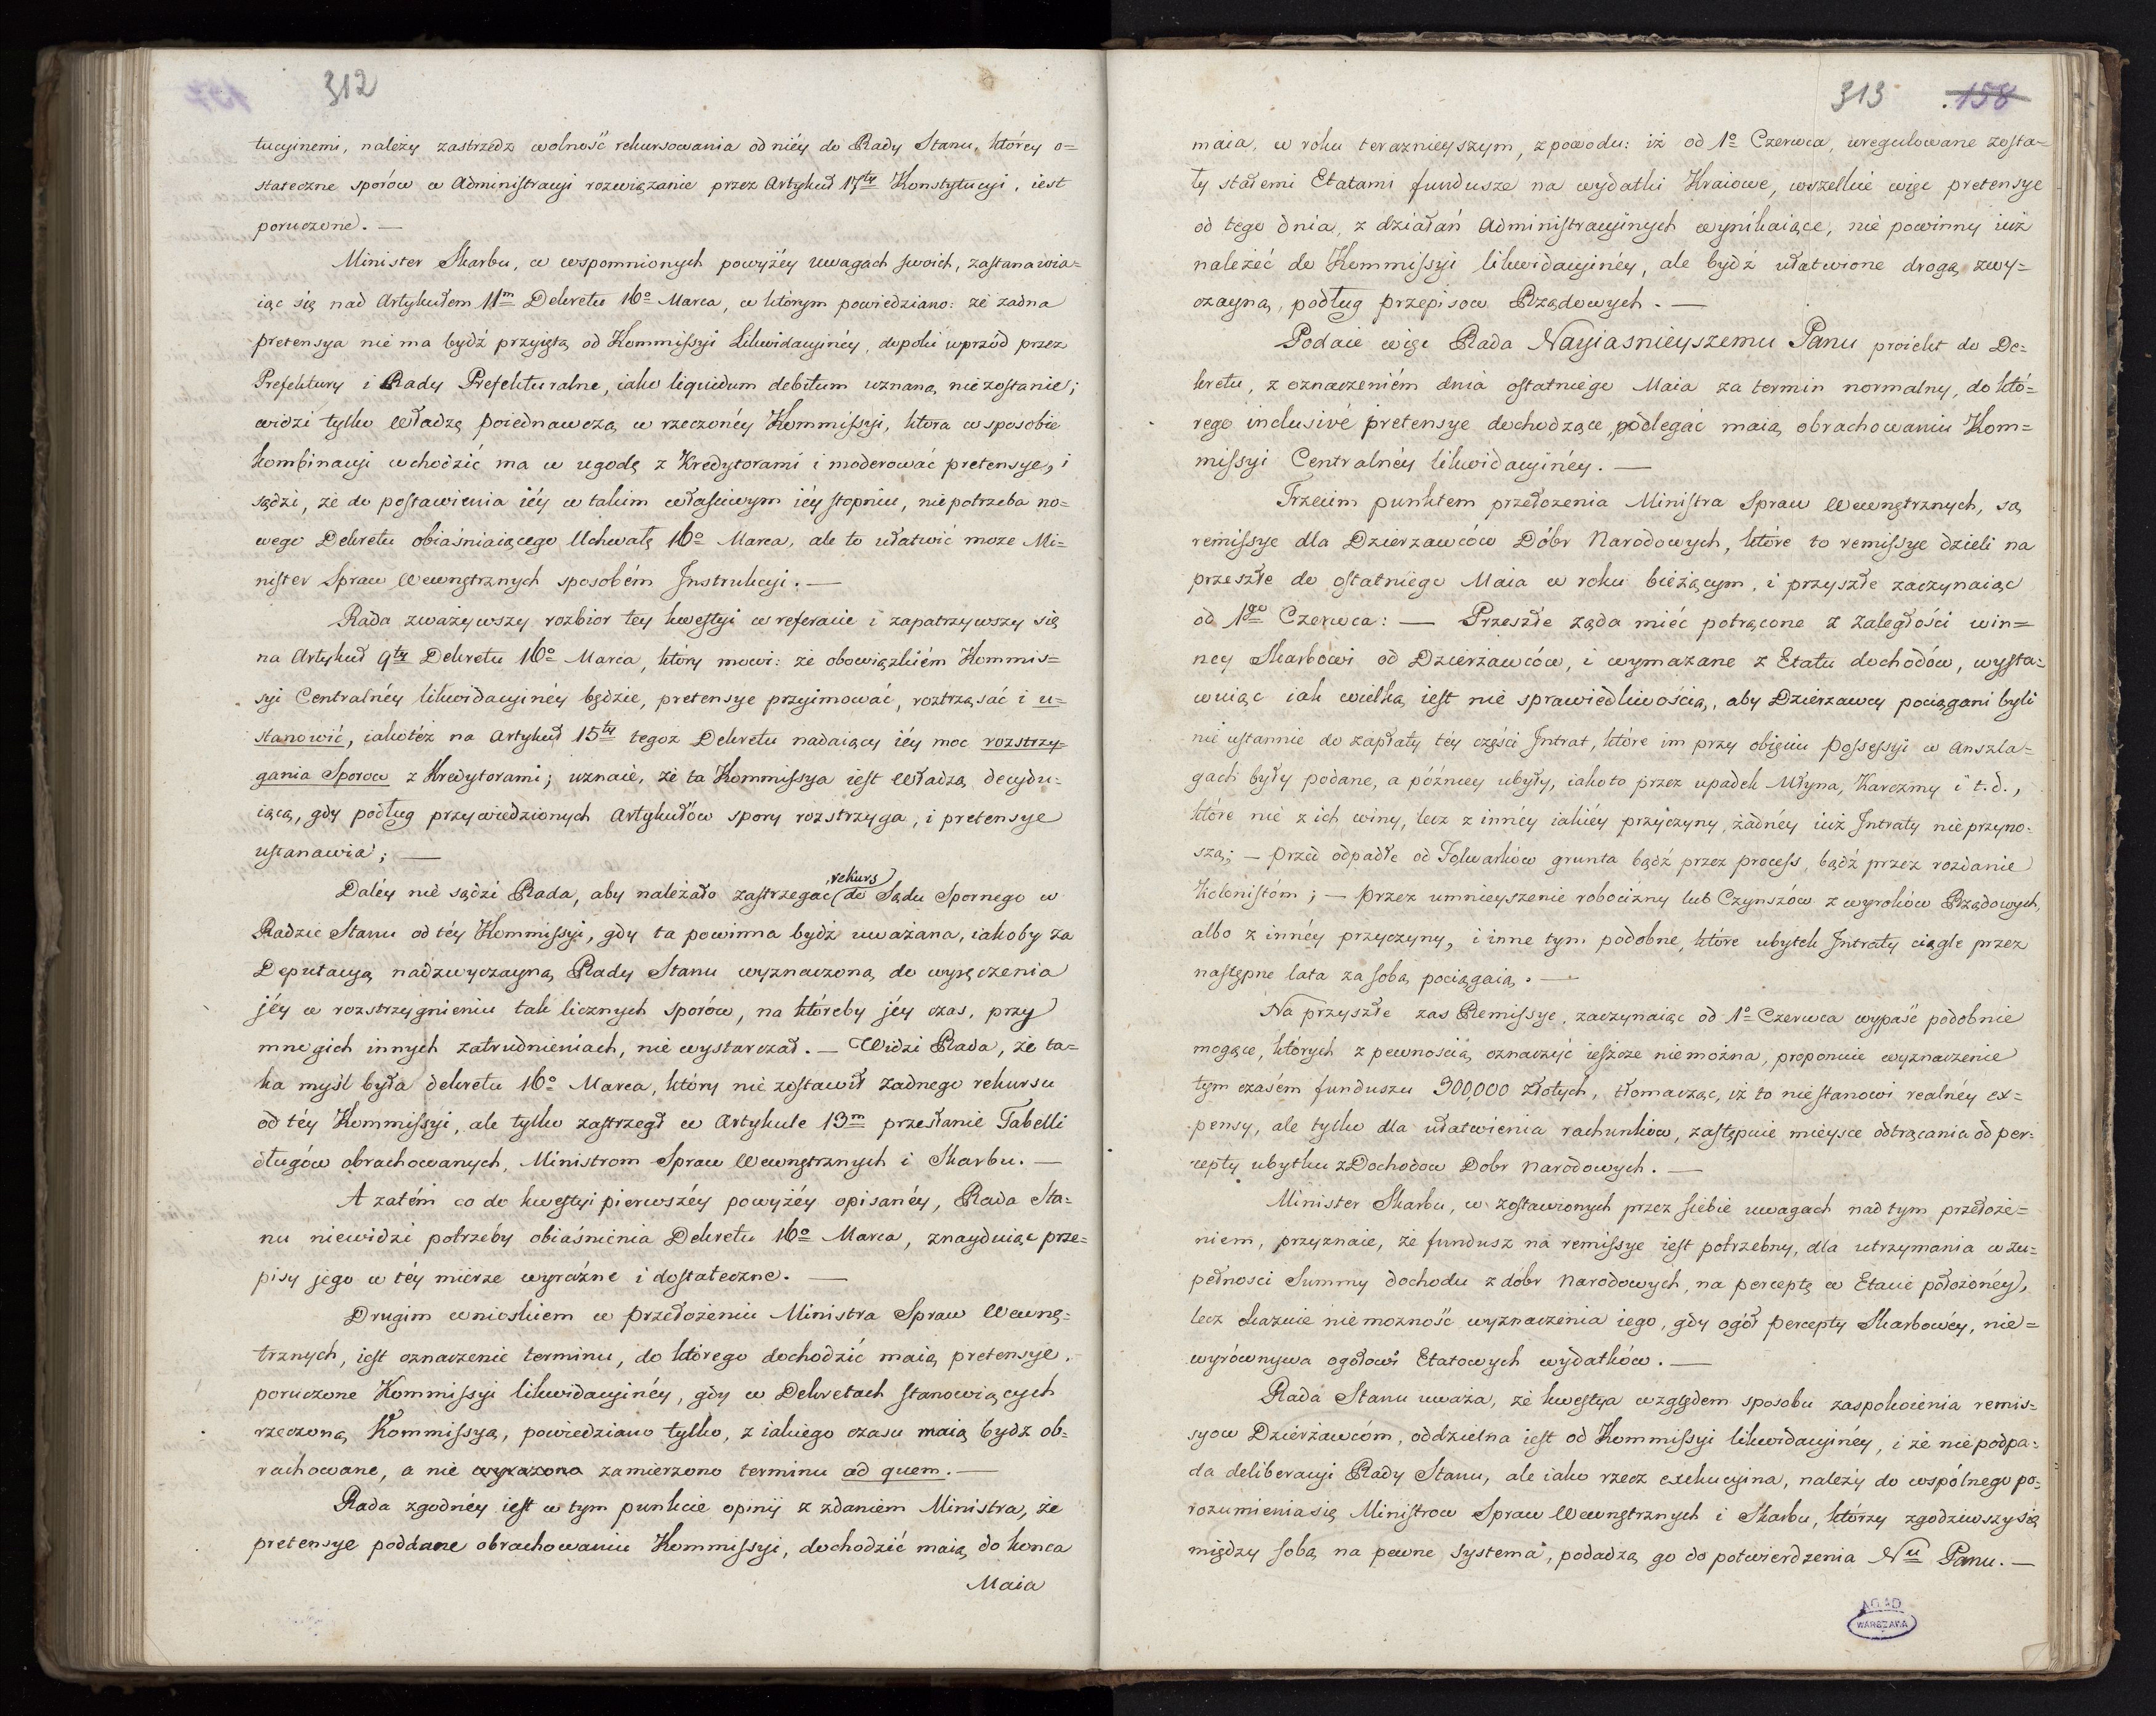 312
tucyinemi, należy zastrzedz wolność rekursowania od niéy do Rady Stanu, któréy o=
stateczne sporów w Administracyi rozwiązanie przez Artykuł 17ty Konstytucyi, iest
poruczone. —
Minister Skarbu, w wspomnionych powyżéy uwagach swoich, zastanawia=
iąc się nad Artykułem 11m Dekretu 16o Marca, w którym powiedziano: że żadna
pretensya nie ma bydź przyiętą od Kommissyi Likwidacyinéy, dopoki wprzód przez
Prefektury i Rady Prefekturalne, iako liquidum debitum uznaną niezostanie;
widzi tylko Władzę poiednawczą w rzeczonéy Kommissyi, ktora w sposobie
kombinacyi wchodzić ma w ugodę z Kredytorami i moderować pretensye, i
sądzi, że do postawienia iéy w takim właściwym iéy stopniu, niepotrzeba no=
wego Dekretu obiaśniaiącego Uchwałę 16o Marca, ale to ułatwić może Mi=
nister Spraw Wewnętrznych sposobém Instrukcyi. —
Rada zważywszy rozbior tey kwestyi w referacie i zapatrzywszy się
na Artykuł 9ty Dekretu 16o Marca, który mowi: że obowiązkiém Kommis=
syi Centralnéy likwidacyinéy będzie, pretensye przyimować, roztrząsać i u=
stanowić, iakotéż na Artykuł 15ty tegoż Dekretu nadaiący iéy moc rozstrzy=
gania Sporow z Kredytorami; uznaie, że ta Kommissya iest Władzą decydu=
iącą, gdy podług przywiedzionych Artykułów spory rozstrzyga, i pretensye
ustanawia; —
Daléy nie sądzi Rada, aby należało zastrzegac rekurs do Sądu Spornego w
Radzie Stanu od téy Kommissyi, gdy ta powinna bydź uważana, iakoby za
Deputacyą nadzwyczayną Rady Stanu wyznaczoną do wyręczenia
jéy w rozstrzygnieniu tak licznych sporów, na któreby jéy czas, przy
mnogich innych zatrudnieniach, nie wystarczał. — Widzi Rada, że ta=
ka myśl była dekretu 16o Marca, który nie zostawił żadnego rekursu
od téy Kommissyi, ale tylko zastrzegł w Artykule 13m przesłanie Tabelli
długów obrachowanych, Ministrom Spraw Wewnętrznych i Skarbu. —
A zatém co do kwestyi pierwszéy powyżéy opisanéy, Rada Sta=
nu niewidzi potrzeby obiaśnienia Dekretu 16o Marca, znayduiąc prze=
pisy jego w téy mierze wyraźne i dostateczne. —
Drugim wnioskiem w przełożeniu Ministra Spraw Wewnę=
trznych, iest oznaczenie terminu, do którego dochodzić maią pretensye,
poruczone Kommissyi likwidacyinéy, gdy w Dekretach stanowiących
rzeczoną Kommissyą, powiedziano tylko, z iakiego czasu maią bydź ob=
rachowane, a nie wyrażono zamierzono terminu ad quem. —
Rada zgodnéy iest w tym punkcie opinij z zdaniem Ministra, że
pretensye poddane obrachowaniu Kommissyi, dochodzić maią do konca
Maia
313 158
maia, w roku teraznieyszym, z powodu: iż od 1o Czerwca, uregulowane zosta=
ły stałemi Etatami fundusze na wydatki Kraiowe, wszelkie więc pretensye
od tego dnia, z działań Administracyinych wynikaiące, nie powinny iuż
należéć do Kommissyi likwidacyinéy, ale bydź ułatwione drogą zwy=
czayną, podług przepisow Rządowych. —
Podaie więc Rada Nayiasnieyszemu Panu proiekt do De=
kretu, z oznaczeniém dnia ostatniego Maia za termin normalny, do któ=
rego inclusivé pretensye dochodzące, podlegać maią obrachowaniu Kom=
missyi Centralnéy likwidacyinéy. —
Trzecim punktem przełożenia Ministra Spraw Wewnętrznych, są
remissye dla Dzierzawców Dóbr Narodowych, które to remissye dzieli na
przeszłe do ostatniego Maia w roku bieżącym, i przyszłe zaczynaiąc
od 1go Czerwca: — Przeszłe żąda mieć potrącone z zaległości win=
ney Skarbowi od Dzierżawców, i wymazane z Etatu dochodów, wysta=
wuiąc iak wielką iest nie sprawiedliwością, aby Dzierzawcy pociągani byli
nie ustannie do zapłaty téy części Intrat, które im przy obięciu possessyi w Anszla=
gach były podane, a późniey ubyły, iako to przez upadek Młyna, Karczmy i t.d.,
które nie z ich winy, lecz z innéy iakiéy przyczyny, żadnéy iuż Intraty nie przyno=
szą; — przed odpadłe od Folwarków grunta bądź przez process, bądź przez rozdanie
Kolonistóm; — przez umnieyszenie robocizny lub Czynszów z wyroków Rządowych,
albo z innéy przyczyny, i inne tym podobne, które ubytek Intraty ciągle przez
następne lata za sobą pociągaią. —
Na przyszłe zas Remissye, zaczynaiąc od 1o Czerwca wypaść podobnie
mogące, których z pewnością oznaczyć ieszcze niemożna, proponuie wyznaczenie
tym czasém funduszu 300,000 złotych, tłomacząc, iż to nie stanowi realnéy ex=
pensy, ale tylko dla ułatwienia rachunków, zastępuie mieysce odtrącania od per=
cepty ubytku z Dochodow Dobr Narodowych. —
Minister Skarbu, w zostawionych przez siebie uwagach nad tym przełoże=
niem, przyznaie, że fundusz na remissye iest potrzebny, dla utrzymania w zu=
pełnosci Summy dochodu z dóbr Narodowych, na perceptę w Etacie położonéy,
lecz okazuie niemożność wyznaczenia iego, gdy ogół percepty Skarbowéy, nie=
wyrównywa ogołowi Etatowych wydatków. —
Rada Stanu uważa, że kwestya względem sposobu zaspokoienia remis=
syow Dzierżawcóm, oddzielna iest od Kommissyi likwidacyinéy, i że niepodpa=
da deliberacyi Rady Stanu, ale iako rzecz exekucyina, należy do wspólnego po=
rozumienia się Ministrow Spraw Wewnętrznych i Skarbu, którzy zgodziwszy się
między sobą na pewne systema, podadzą go do potwierdzenia Nu Panu. —
AGAD
WARSZAWA